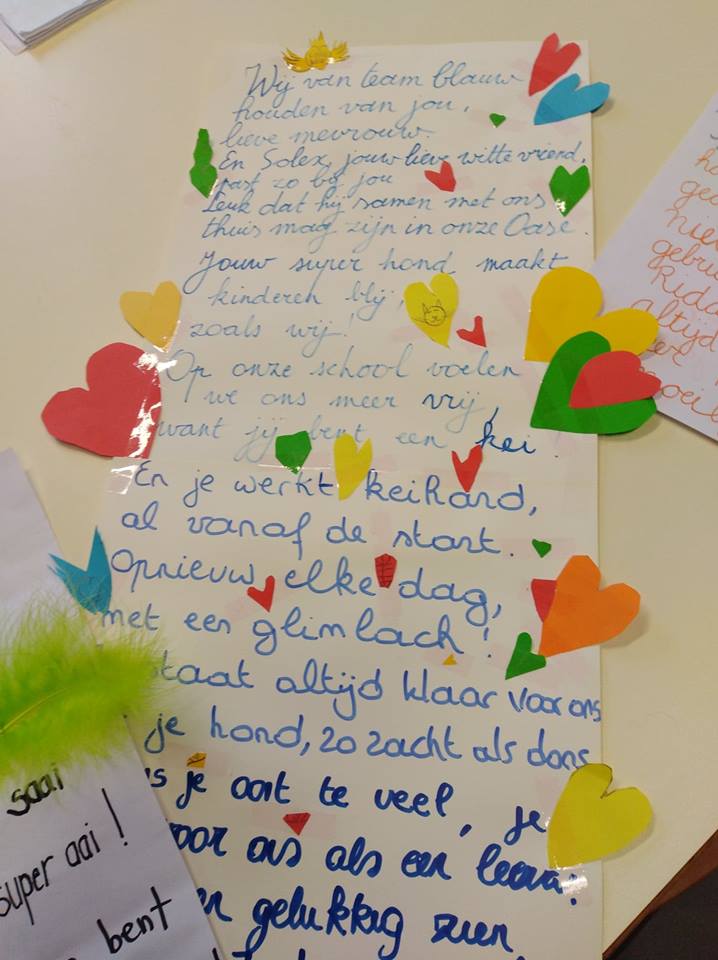 Wij van team blauw
houden van jou,
lieve mevrouw.
En Solex, jouw lieve witte vriend,
past zo bij jou
Leuk dat hij samen met ons
thuis mag zijn in onze Oase.
Jouw super hond maakt
kinderen blij,
zoals wij!
Op onze school voelen
we ons meer vrij,
want jij bent een kei!
En je werkt keihard,
al vanaf de start.
Opnieuw elke dag,
met een glimlach!
staat altijd klaar voor ons
je hond, zo zacht als dons
is je ooit te veel, je
voor ons als een
gelukkig zien
saai
super aai!
bent
Altijd